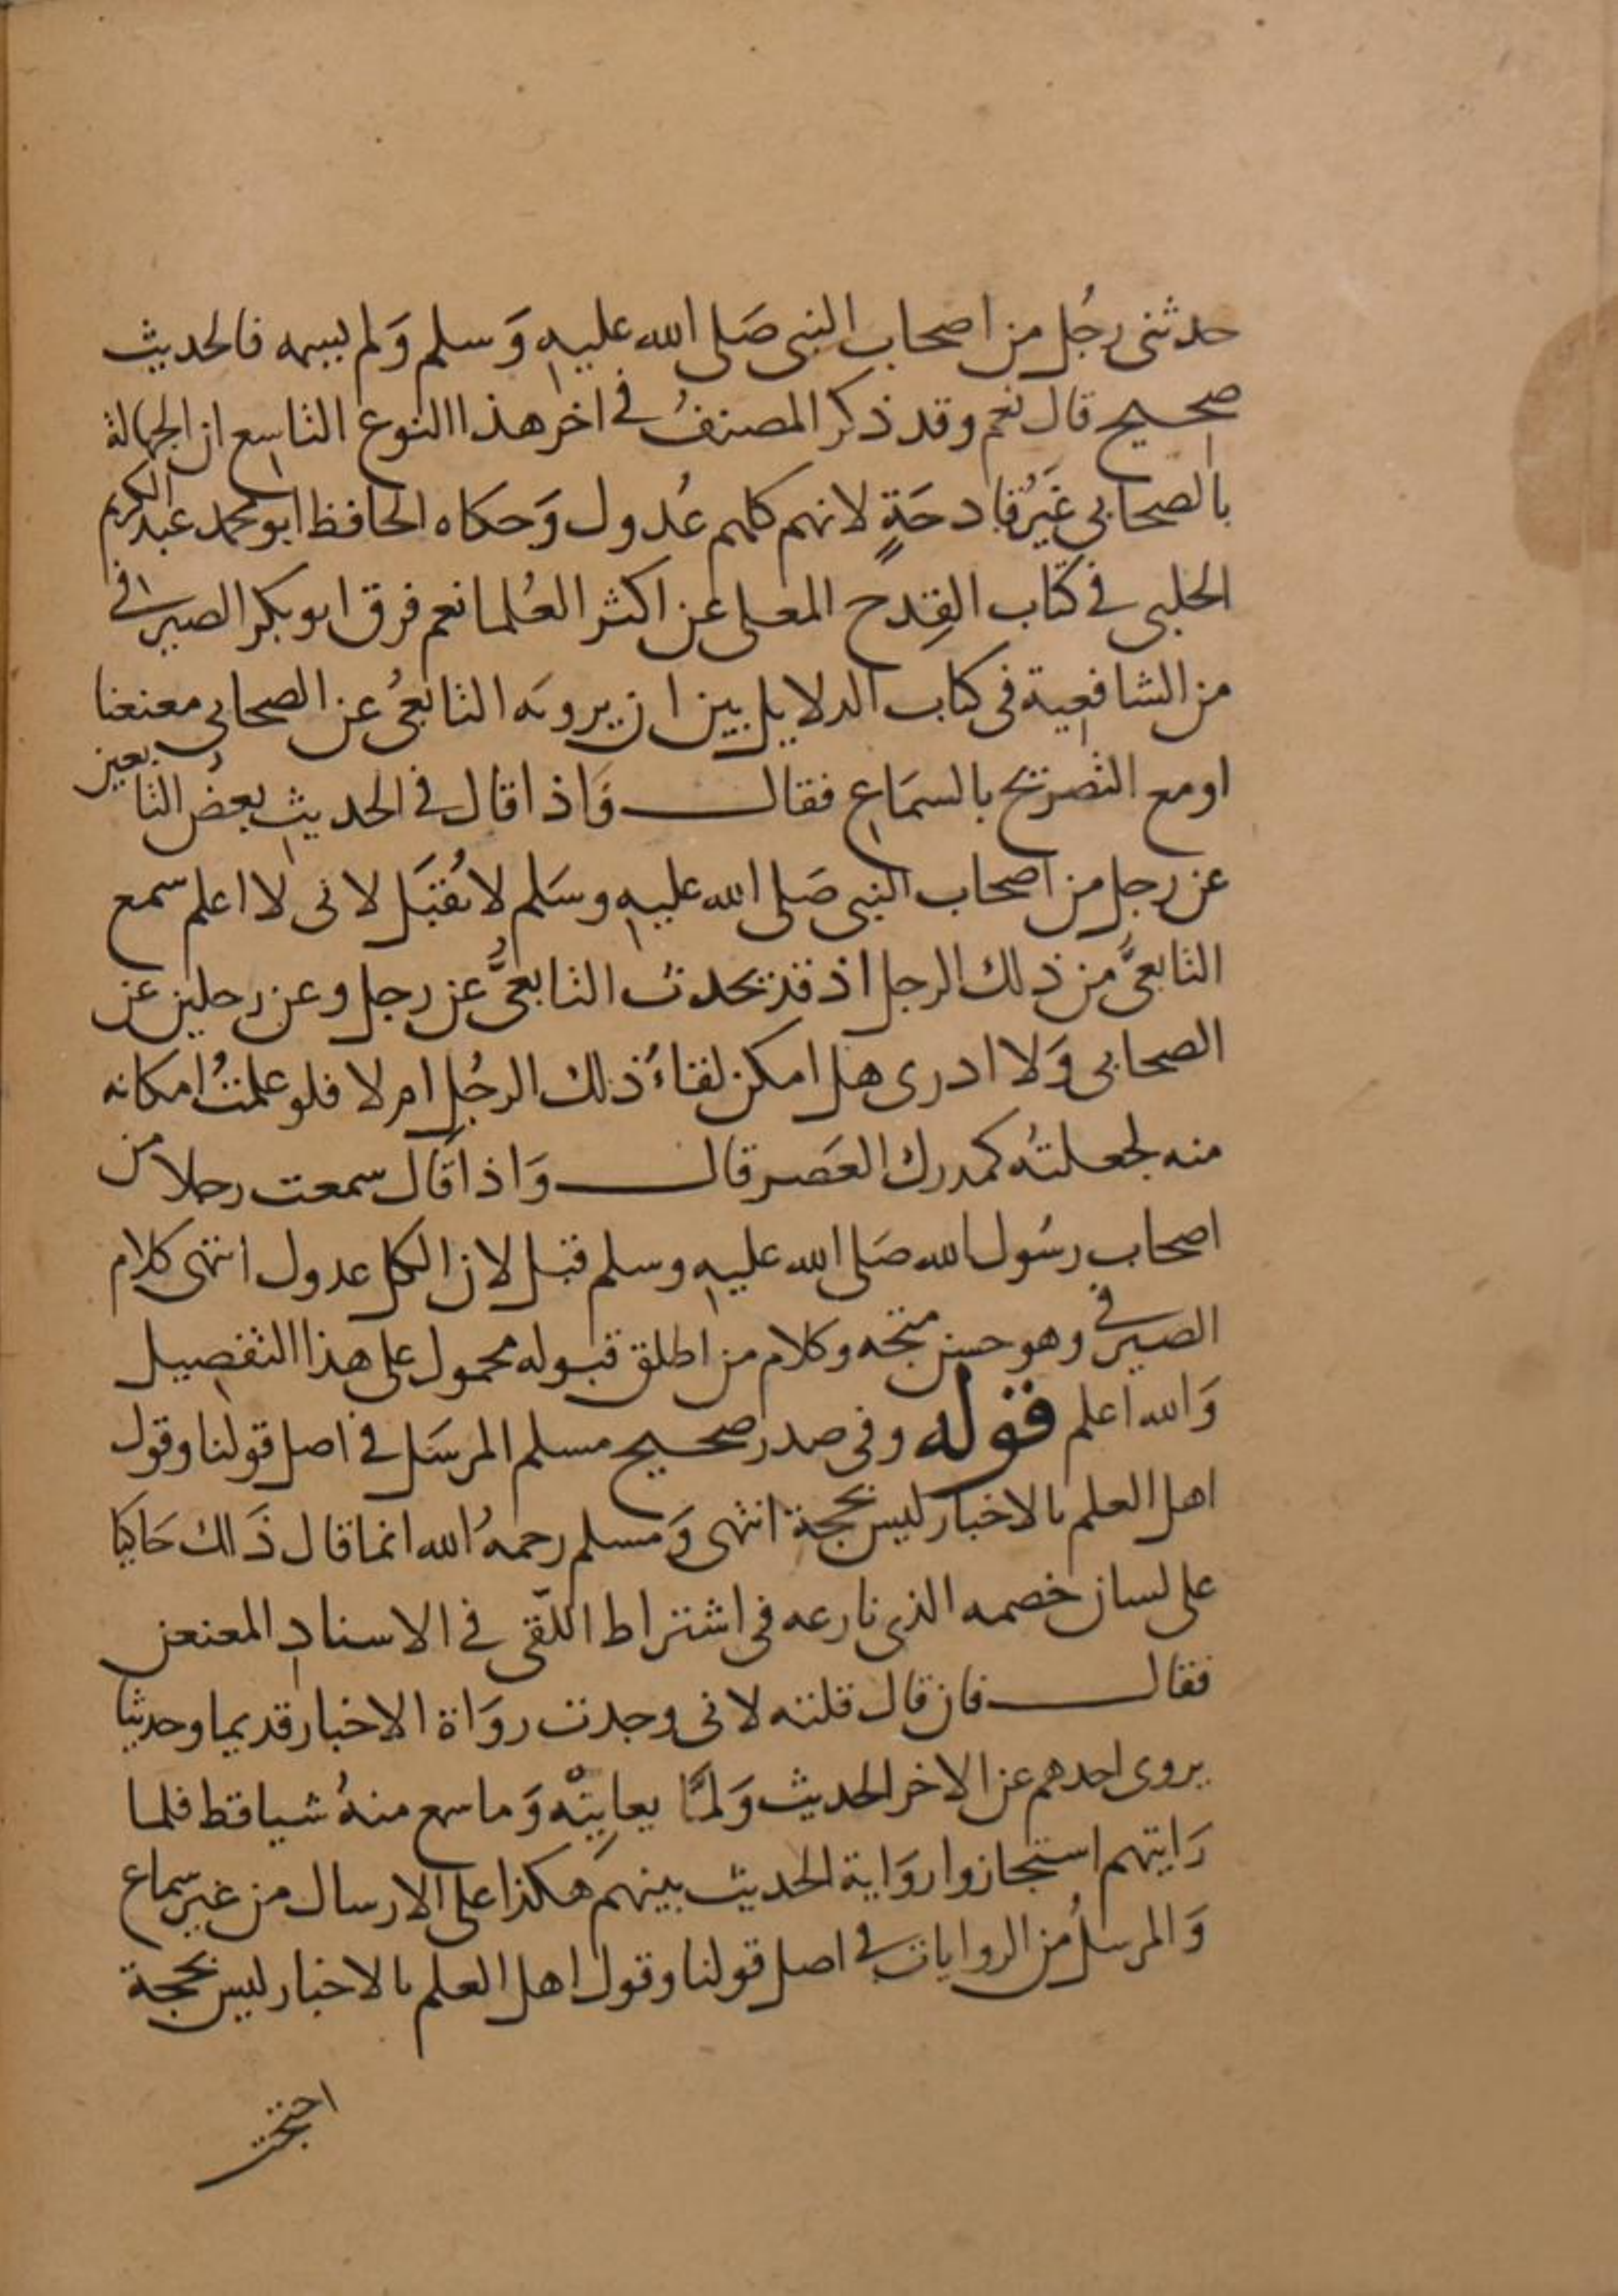 حدثنى رجُل من اصحاب النبى صَلى الله عليه وَسلم وَلم يسمه فالحديث
صحيح قال نعم وقد ذكر المصنفُ فى اخر هذا النوع التاسع ان الجهالة
بالصحابى غَيرُ قادحَةٍ لانهم كلهم عُدول وَحكاه الحافظ ابو محمد عبد الكريم
الحلبى فى كتاب القِدح المعلى عن اكثر العُلما نعم فرق ابو بكر الصيرفى
من الشافعية فى كتاب الدلايل بين ان يرويه التابعىُ عن الصحابى معنعنا
او مع التصريح بالسمَاع فقال وَاذا قال فى الحديث بعضُ التابعين
عن رجل من اصحاب النبى صَلى الله عليه وسَلم لا يُقبَل لانى لا اعلم سمع
التابعىُّ من ذلك الرجل اذ قد يحدث التابعىُّ عن رجل وعن رجلين عن
الصحابى وَلا ادرى هل امكن لقاءُ ذلك الرجُل ام لا فلو علمتُ امكانه
منه لجعلتُه كمدرك العَصر قال وَاذا قال سمعت رجلا من
اصحاب رسُول الله صَلى الله عليه وسلم قبل لان الكل عدول انتهى كلام
الصيرفى وهو حسن متجه وكلام من اطلق قبوله محمول على هذا التفصيل
وَالله اعلم قوله وفى صدر صحيح مسلم المرسَل فى اصل قولنا وقول
اهل العلم بالاخبار ليس بحجة انتهى وَمسلم رحمهُ الله انما قال ذَالك حَاكيا
على لسان خصمه الذى نازعه فى اشتراط اللّقى فى الاسنادِ المعنعن
فقال فان قال قلته لانى وجدت روَاة الاخبار قديما وحديثا
يروى احدهم عن الاخر الحديث وَلمَّا يعاينْه وَما سمع منهُ شيا قط فلما
رَايتهم استجازوا روَاية الحديث بينهم هَكذا على الارسال من غير سماع
وَالمرسلُ من الروايات فى اصل قولنا وقول اهل العلم بالاخبار ليس بحجة
احتجت